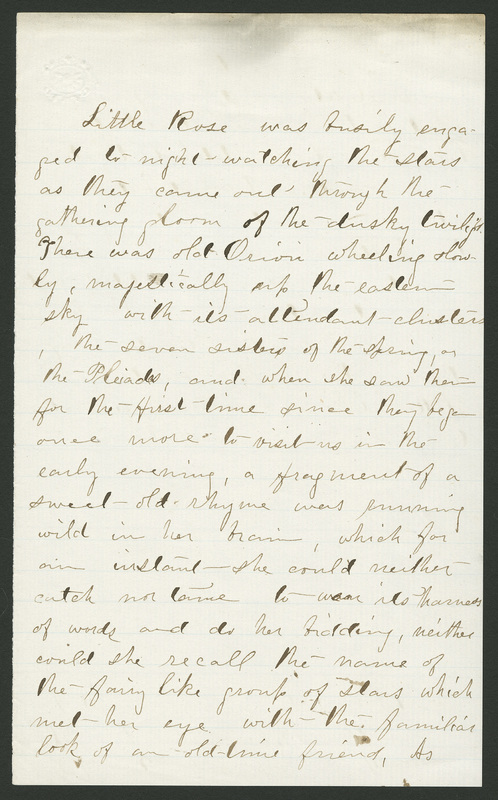 Little Rose was busily enga-
ged to-night-watching the stars
as they came out through the
gathering gloom of the dusky twilight.
There was old Orion wheeling slow-
ly, majestically up the eastern
sky with its attendant clusters
, the seven sisters of the spring, or
the Pleiads, and when she saw them
for the first time since they began
once more to visit us in the
early evening, a fragment of a
sweet old rhyme was running
wild in her brain, which for
an instant she could neither
catch nor tame to wear its harness
of words and do her bidding, neither
could she recall the name of
the fairy like group of stars which
met her eye with the familiar
look of an old-time friend, As